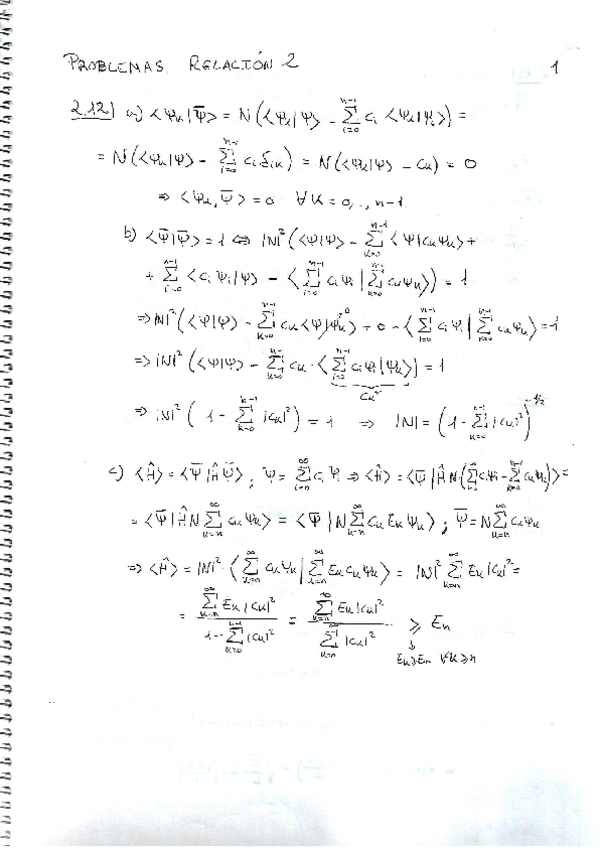 PROBLEMAS RELACIÓN 2 1
2.12) a) <Ψk|Ψ̄> = N(<Ψk|Ψ> - Σ_{i=0}^{n-1} ci <Ψk|Ψi>) =
= N(<Ψk|Ψ> - Σ_{i=0}^{n-1} ci δik) = N(<Ψk|Ψ> - ck) = 0
⇒ <Ψk, Ψ̄> = 0 ∀k = 0,.., n-1
b) <Ψ̄|Ψ̄> = 1 ⇔ |N|² (<Ψ|Ψ> - Σ_{k=0}^{n-1} <Ψ|ckΨk> +
+ Σ_{i=0}^{n-1} <ciΨi|Ψ> - <Σ_{i=0}^{n-1} ciΨi | Σ_{k=0}^{n-1} ckΨk>) = 1
⇒ |N|² (<Ψ|Ψ> - Σ_{k=0}^{n-1} ck <Ψ|Ψk> + 0 - <Σ_{i=0}^{n-1} ciΨi | Σ_{k=0}^{n-1} ckΨk> = 1
⇒ |N|² (<Ψ|Ψ> - Σ_{k=0}^{n-1} ck · <Σ_{i=0}^{n-1} ciΨi|Ψk>) = 1
ck*
⇒ |N|² (1 - Σ_{k=0}^{n-1} |ck|²) = 1 ⇒ |N| = (1 - Σ_{k=0}^{n-1} |ck|²)^{-1/2}
c) <Ĥ> = <Ψ̄|ĤΨ̄>; Ψ = Σ^{∞} ciΨi ⇒ <Ĥ> = <Ψ̄|ĤN(Σ^{∞} ciΨi - Σ^{n-1} ckΨk)> =
= <Ψ̄|ĤN Σ_{k=n}^{∞} ckΨk> = <Ψ̄|N Σ_{k=n}^{∞} ck Ek Ψk>; Ψ̄ = N Σ_{k=n}^{∞} ckΨk
⇒ <Ĥ> = |N|² · <Σ_{k=n}^{∞} ckΨk | Σ^{∞} EkckΨk> = |N|² Σ_{k=n}^{∞} Ek|ck|² =
= Σ_{k=n}^{∞} Ek|ck|² / (1 - Σ_{k=0}^{n-1} |ck|²) = Σ_{k=n}^{∞} Ek|ck|² / Σ_{k=n}^{∞} |ck|² ≥ En
↓
Ek≥En ∀k≥n